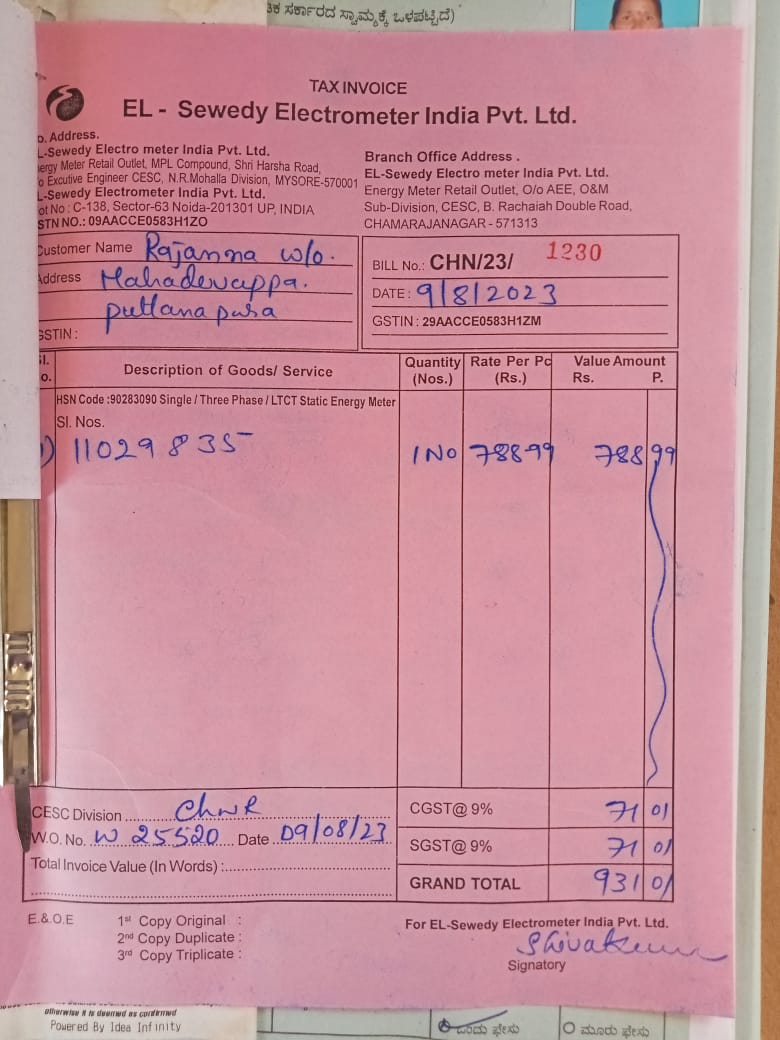 ಠಿಕ ಸರ್ಕಾರದ ಸ್ವಾಮ್ಯಕ್ಕೆ ಒಳಪಟ್ಟಿದೆ)
TAX INVOICE
EL - Sewedy Electrometer India Pvt. Ltd.
o. Address.
L-Sewedy Electro meter India Pvt. Ltd.
ergy Meter Retail Outlet, MPL Compound, Shri Harsha Road,
o Excutive Engineer CESC, N.R.Mohalla Division, MYSORE-570001
L-Sewedy Electrometer India Pvt. Ltd.
ot No : C-138, Sector-63 Noida-201301 UP, INDIA
STN NO.: 09AACCE0583H1ZO
Branch Office Address .
EL-Sewedy Electro meter India Pvt. Ltd.
Energy Meter Retail Outlet, O/o AEE, O&M
Sub-Division, CESC, B. Rachaiah Double Road,
CHAMARAJANAGAR - 571313
Customer Name Rajanna w/o.
Address Mahadevappa.
puttanapura
GSTIN :
BILL No.: CHN/23/ 1230
DATE : 9/8/2023
GSTIN : 29AACCE0583H1ZM
Sl. o. Description of Goods/ Service Quantity (Nos.) Rate Per Pc (Rs.) Value Amount Rs. P.
HSN Code :90283090 Single / Three Phase / LTCT Static Energy Meter
Sl. Nos.
1) 11029835 1 No 788-99 788 99
CESC Division ChNR CGST@ 9% 71 01
W.O. No. W 25520 Date 09/08/23 SGST@ 9% 71 01
Total Invoice Value (In Words) : GRAND TOTAL 931 01
E.&.O.E 1st Copy Original :
2nd Copy Duplicate :
3rd Copy Triplicate :
For EL-Sewedy Electrometer India Pvt. Ltd.
Shivakumar
Signatory
otherwise it is deemed as confirmed
Powered By Idea Infinity
ಒಂದು ಫೇಸು ಮೂರು ಫೇಸು